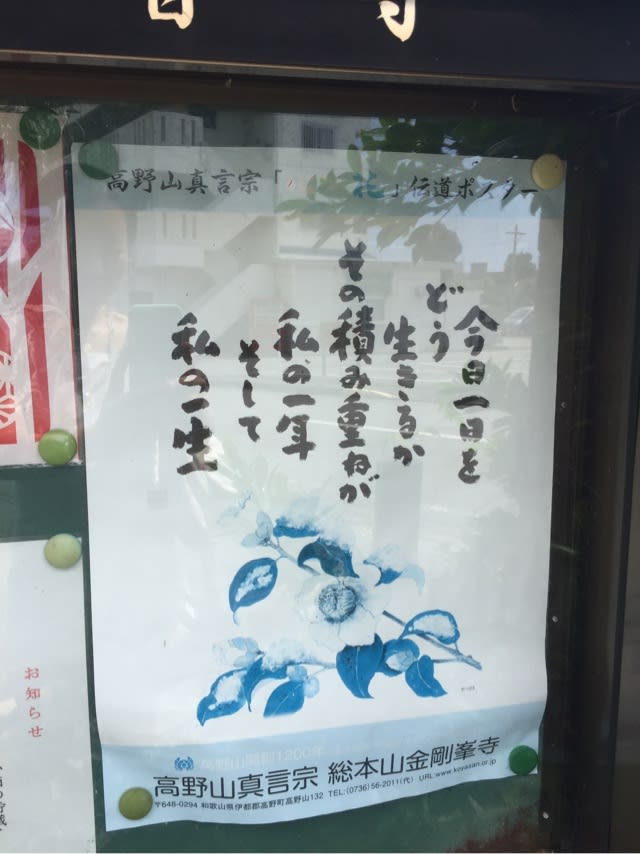 寺
高野山真言宗「 花」伝道ポスター
今日一日を
どう
生きるか
その積み重ねが
私の一年
そして
私の一生
高野山開創1200年
高野山真言宗 総本山金剛峯寺
〒648-0294 和歌山県伊都郡高野町高野山132 TEL:(0736)56-2011(代) URL:www.koyasan.or.jp
お知らせ